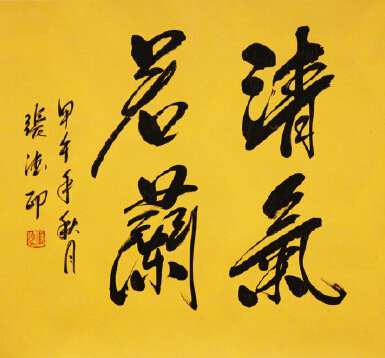 清氣
若蘭
甲午年秋月
張德印